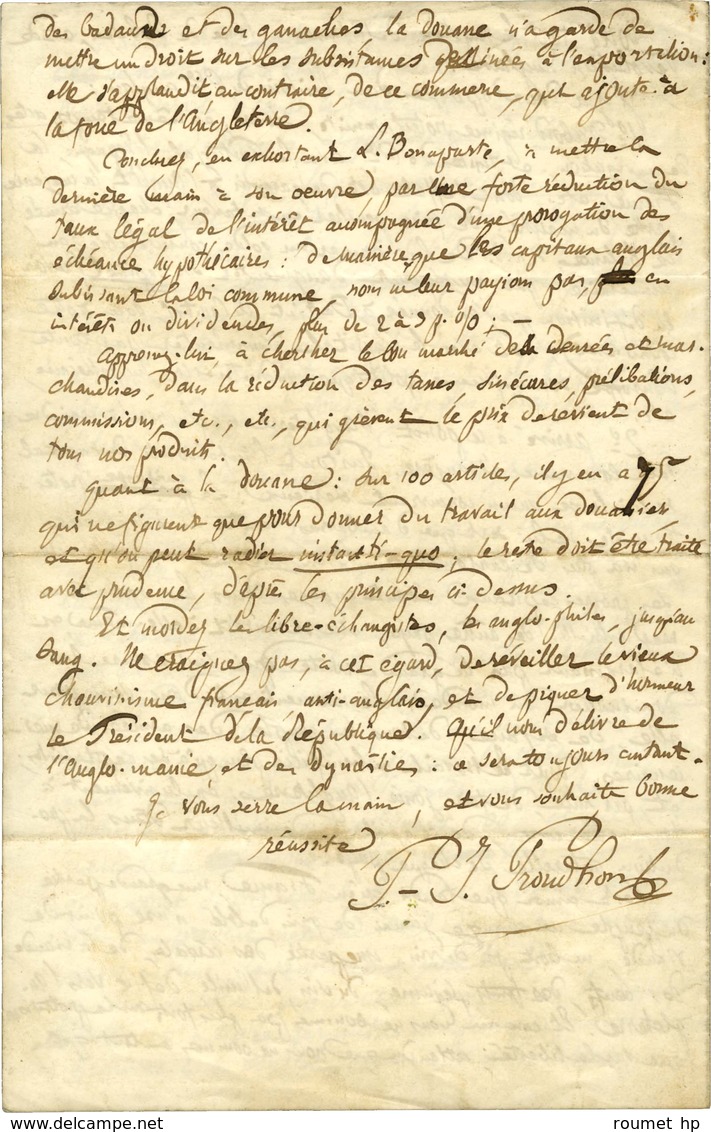 des badauds et des ganaches, la douane n'a garde de
mettre un droit sur les subsistances destinées à l'exportation :
elle s'applaudit, au contraire, de ce commerce, qui ajoute à
la force de l'Angleterre.
Concluez, en exhortant L. Bonaparte, à mettre la
dernière main à son oeuvre, par une forte réduction du
taux légal de l'intérêt accompagnée d'une prorogation des
échéances hypothécaires : de manière que les capitaux anglais
subissant la loi commune, nous ne leur payions pas, en
intérêts ou dividendes, plus de 2 à 3 p. % ; —
Apprenez-lui, à chercher le bon marché des denrées et mar-
chandises, dans la réduction des taxes, sinécures, prélibations,
commissions, etc., etc., qui grèvent le prix de revient de
tous nos produits.
Quant à la Douane : sur 100 articles, il y en a 75
qui ne figurent que pour donner du travail aux douaniers
et qu'on peut radier instanti-quo ; le reste doit être traité
avec prudence, d'après les principes ci-dessus.
Et mordez les libre-échangistes, les anglo-philes, jusqu'au
sang. Ne craignez pas, à cet égard, de réveiller le vieux
chauvinisme français, anti-anglais, et de piquer d'honneur
le Président de la République. Qu'il nous délivre de
l'Anglo-manie et des Dynasties : ce sera toujours autant.
Je vous serre la main, et vous souhaite bonne
réussite,
P.-J. Proudhon
roumet hp